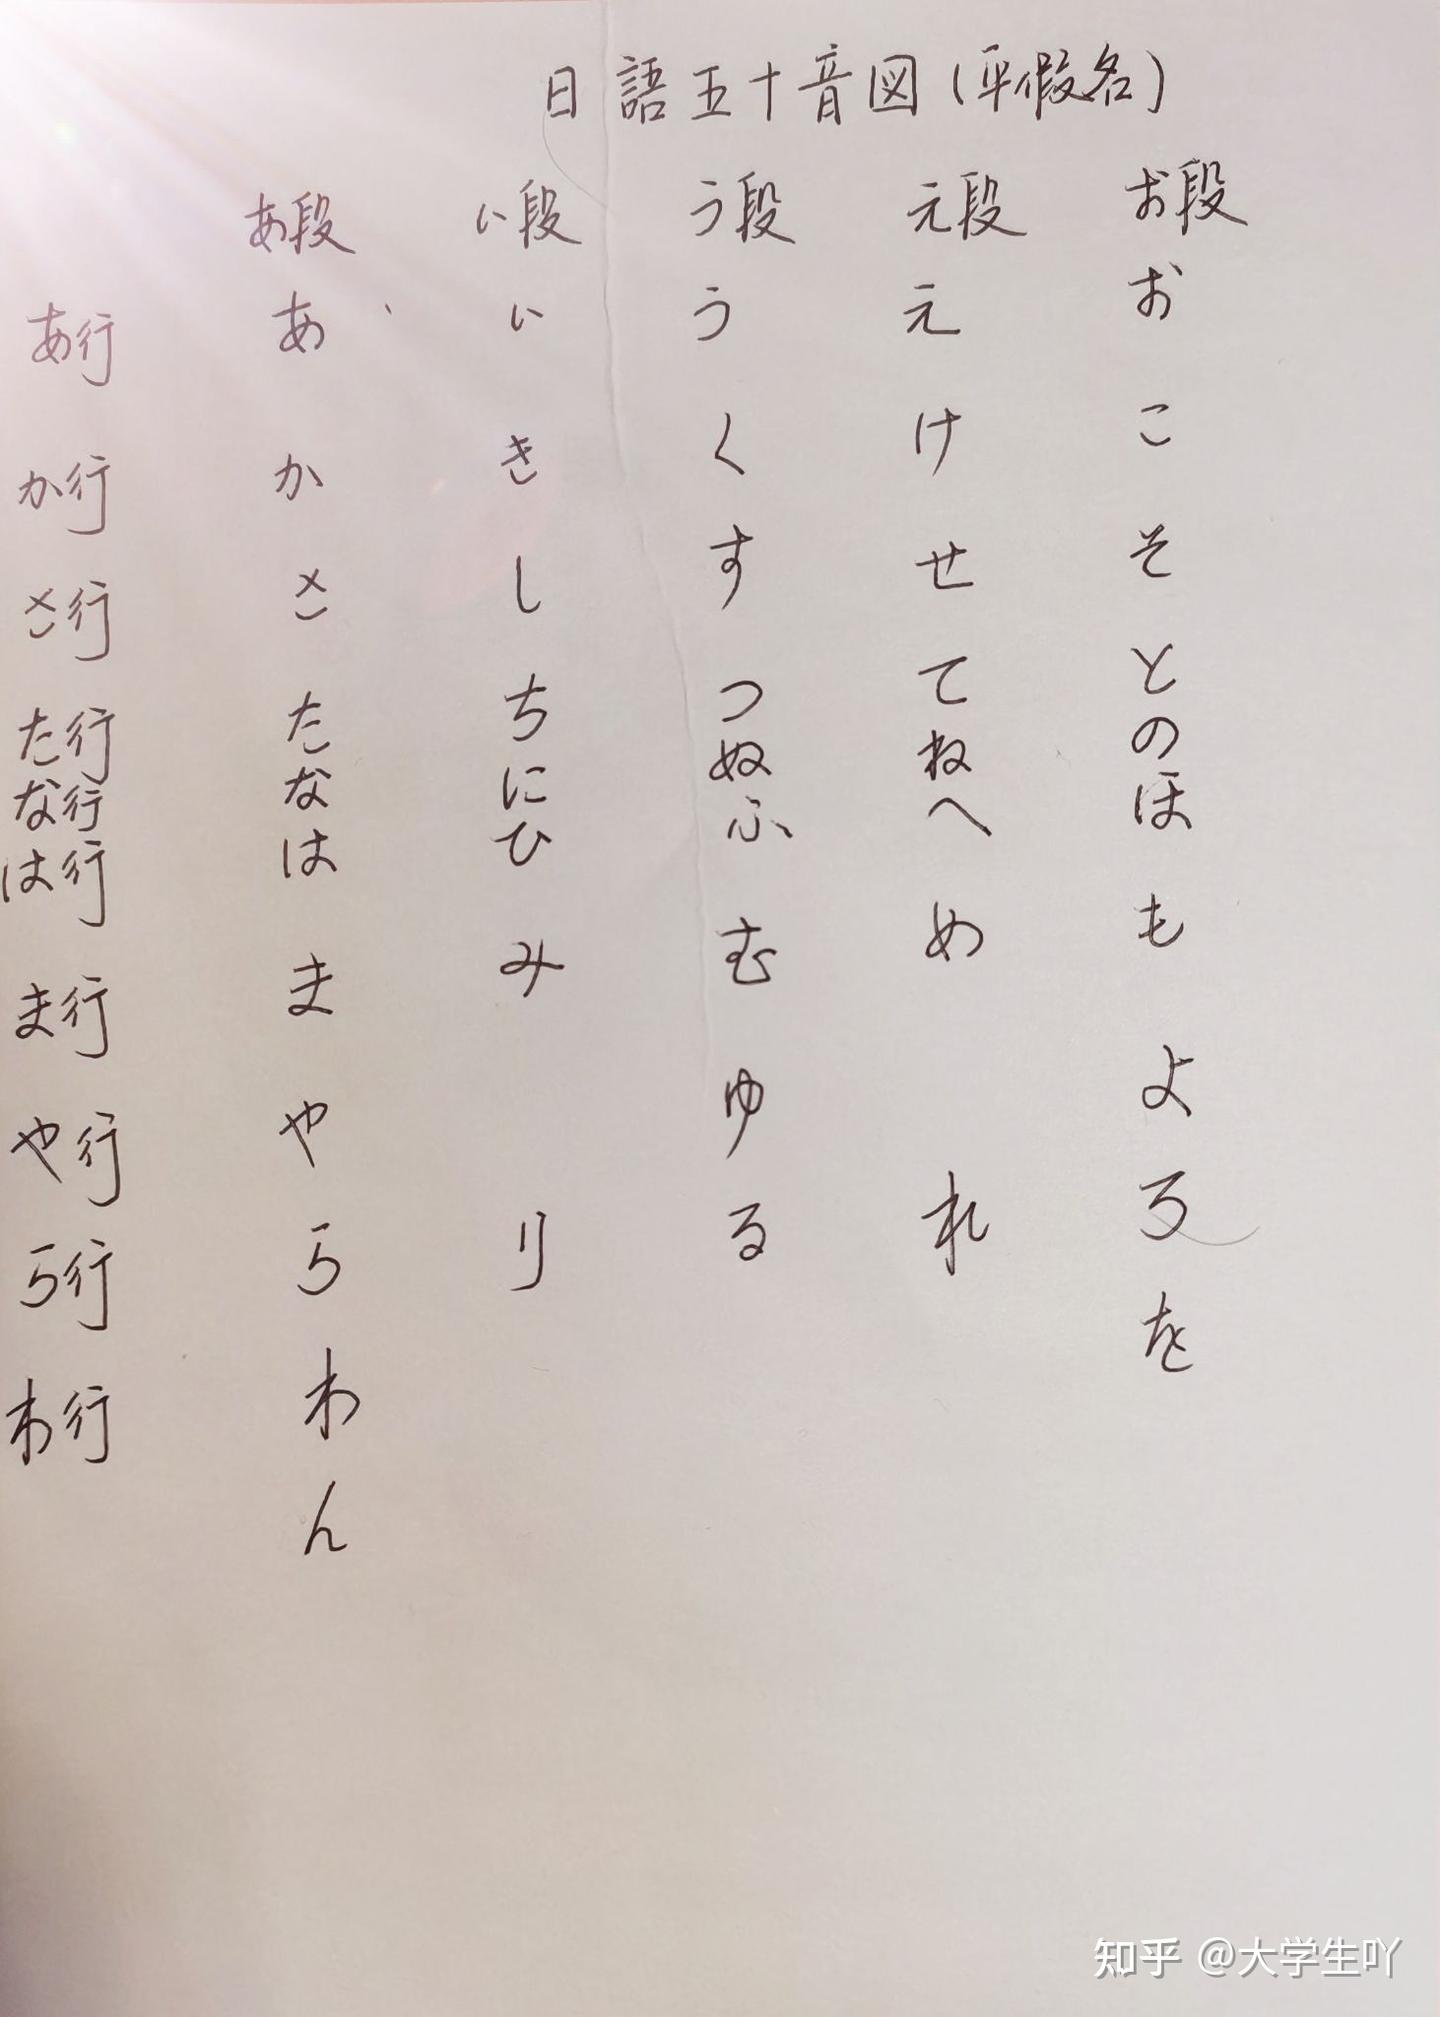 日語五十音図(平假名)
あ段 い段 う段 え段 お段
あ行 あ い う え お
か行 か き く け こ
さ行 さ し す せ そ
た行 た ち つ て と
な行 な に ぬ ね の
は行 は ひ ふ へ ほ
ま行 ま み む め も
や行 や ゆ よ
ら行 ら り る れ ろ
わ行 わ を
ん
知乎 @大学生吖